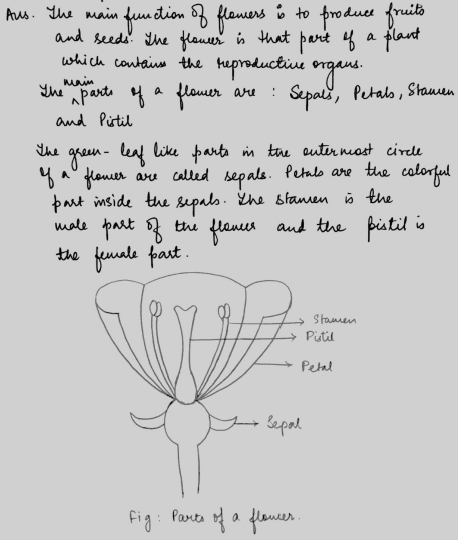 Ans. The main function of flowers is to produce fruits
and seeds. The flower is that part of a plant
which contains the reproductive organs.
The main parts of a flower are : Sepals, Petals, Stamen
and Pistil
The green-leaf like parts in the outermost circle
of a flower are called sepals. Petals are the colorful
part inside the sepals. The stamen is the
male part of the flower and the pistil is
the female part.
Stamen
Pistil
Petal
Sepal
Fig: Parts of a flower.